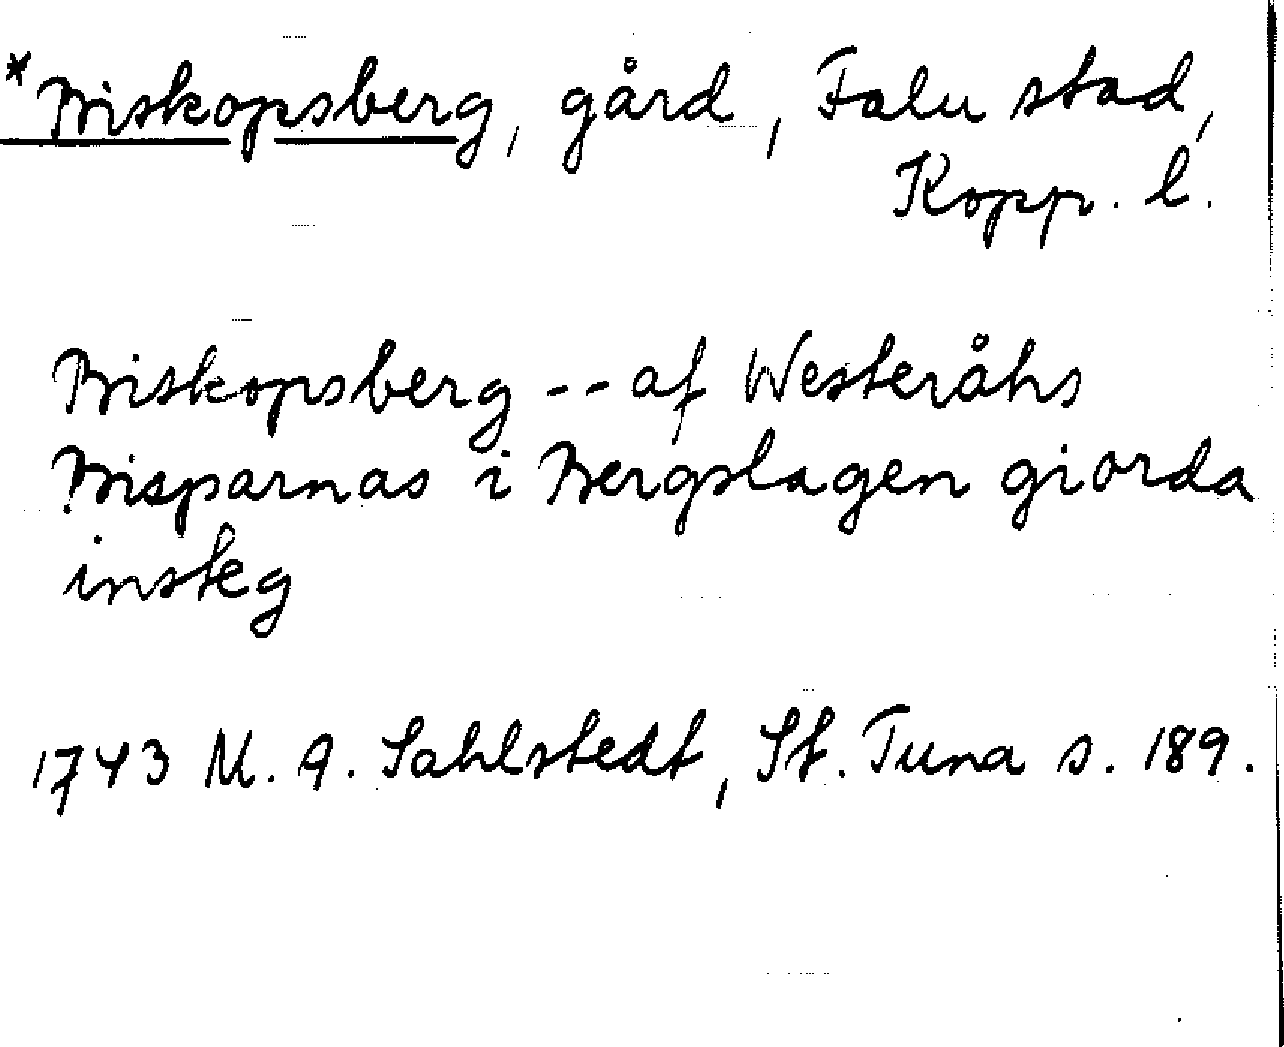 *Biskopsberg, gård, Falu stad,
Kopp. l.
Biskopsberg -- af Westeråhs
Bisparnas i Bergslagen giorda
insteg
1743 M. A. Sahlstedt, St. Tuna s. 189.